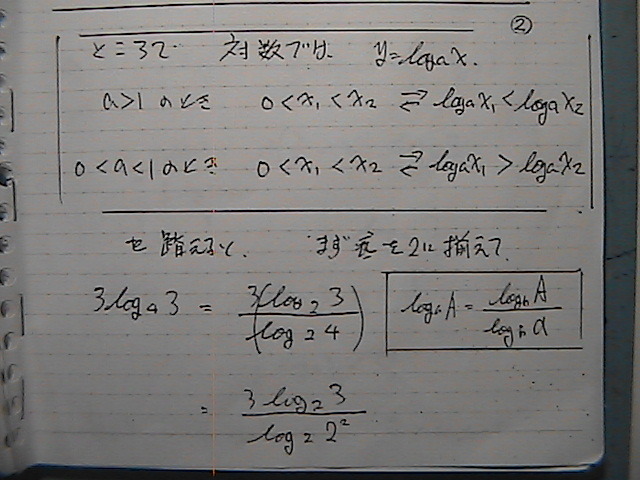 ②
ところで 対数では、 y=logₐx.
a>1 のとき 0<x₁<x₂ ⇄ logₐx₁<logₐx₂
0<a<1のとき 0<x₁<x₂ ⇄ logₐx₁>logₐx₂
を踏えると、 まず底を2に揃えて
3log₄3 = 3(log₂3)/(log₂4) logₐA = log_bA/log_ba
= 3log₂3/log₂2²